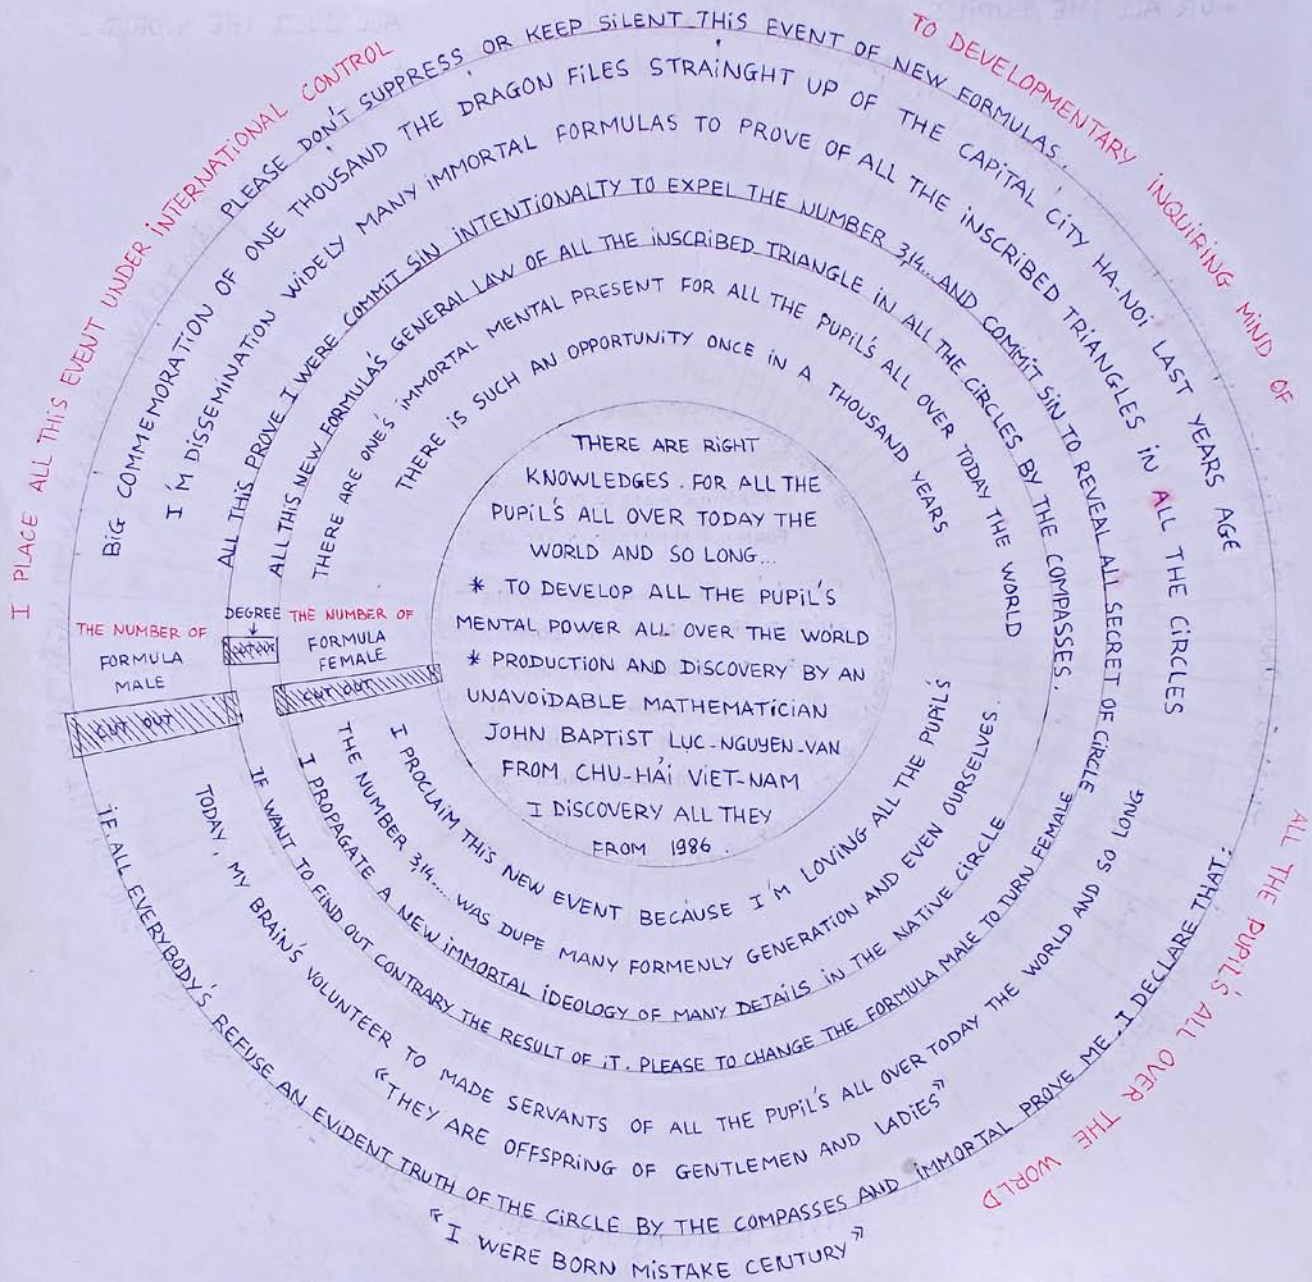 I PLACE ALL THIS EVENT UNDER INTERNATIONAL CONTROL
TO DEVELOPMENTARY INQUIRING MIND OF
ALL THE PUPIL'S ALL OVER THE WORLD
PLEASE DON'T SUPPRESS OR KEEP SILENT THIS EVENT OF NEW FORMULAS.
BIG COMMEMORATION OF ONE THOUSAND THE DRAGON FILES STRAINGHT UP OF THE CAPITAL CITY HA-NOI LAST YEARS AGE
I'M DISSEMINATION WIDELY MANY IMMORTAL FORMULAS TO PROVE OF ALL THE INSCRIBED TRIANGLES IN ALL THE CIRCLES
ALL THIS PROVE I WERE COMMIT SIN INTENTIONALTY TO EXPEL THE NUMBER 3,14... AND COMMIT SIN TO REVEAL ALL SECRET OF CIRCLE
ALL THIS NEW FORMULA'S GENERAL LAW OF ALL THE INSCRIBED TRIANGLE IN ALL THE CIRCLES BY THE COMPASSES.
THERE ARE ONE'S IMMORTAL MENTAL PRESENT FOR ALL THE PUPIL'S ALL OVER TODAY THE WORLD
THERE IS SUCH AN OPPORTUNITY ONCE IN A THOUSAND YEARS
THERE ARE RIGHT
KNOWLEDGES. FOR ALL THE
PUPIL'S ALL OVER TODAY THE
WORLD AND SO LONG...
* TO DEVELOP ALL THE PUPIL'S
MENTAL POWER ALL OVER THE WORLD
* PRODUCTION AND DISCOVERY BY AN
UNAVOIDABLE MATHEMATICIAN
JOHN BAPTIST LUC-NGUYEN-VAN
FROM CHU-HẢI VIET-NAM
I DISCOVERY ALL THEY
FROM 1986.
THE NUMBER OF
FORMULA
MALE
CUT OUT
DEGREE
THE NUMBER OF
FORMULA
FEMALE
CUT OUT
I PROCLAIM THIS NEW EVENT BECAUSE I'M LOVING ALL THE PUPIL'S
THE NUMBER 3,14.... WAS DUPE MANY FORMENLY GENERATION AND EVEN OURSELVES.
I PROPAGATE A NEW IMMORTAL IDEOLOGY OF MANY DETAILS IN THE NATIVE CIRCLE
IF WANT TO FIND OUT CONTRARY THE RESULT OF IT. PLEASE TO CHANGE THE FORMULA MALE TO TURN FEMALE
TODAY, MY BRAIN'S VOLUNTEER TO MADE SERVANTS OF ALL THE PUPIL'S ALL OVER TODAY THE WORLD AND SO LONG
"THEY ARE OFFSPRING OF GENTLEMEN AND LADIES"
IF ALL EVERYBODY'S REFUSE AN EVIDENT TRUTH OF THE CIRCLE BY THE COMPASSES AND IMMORTAL PROVE ME, I DECLARE THAT:
"I WERE BORN MISTAKE CENTURY"